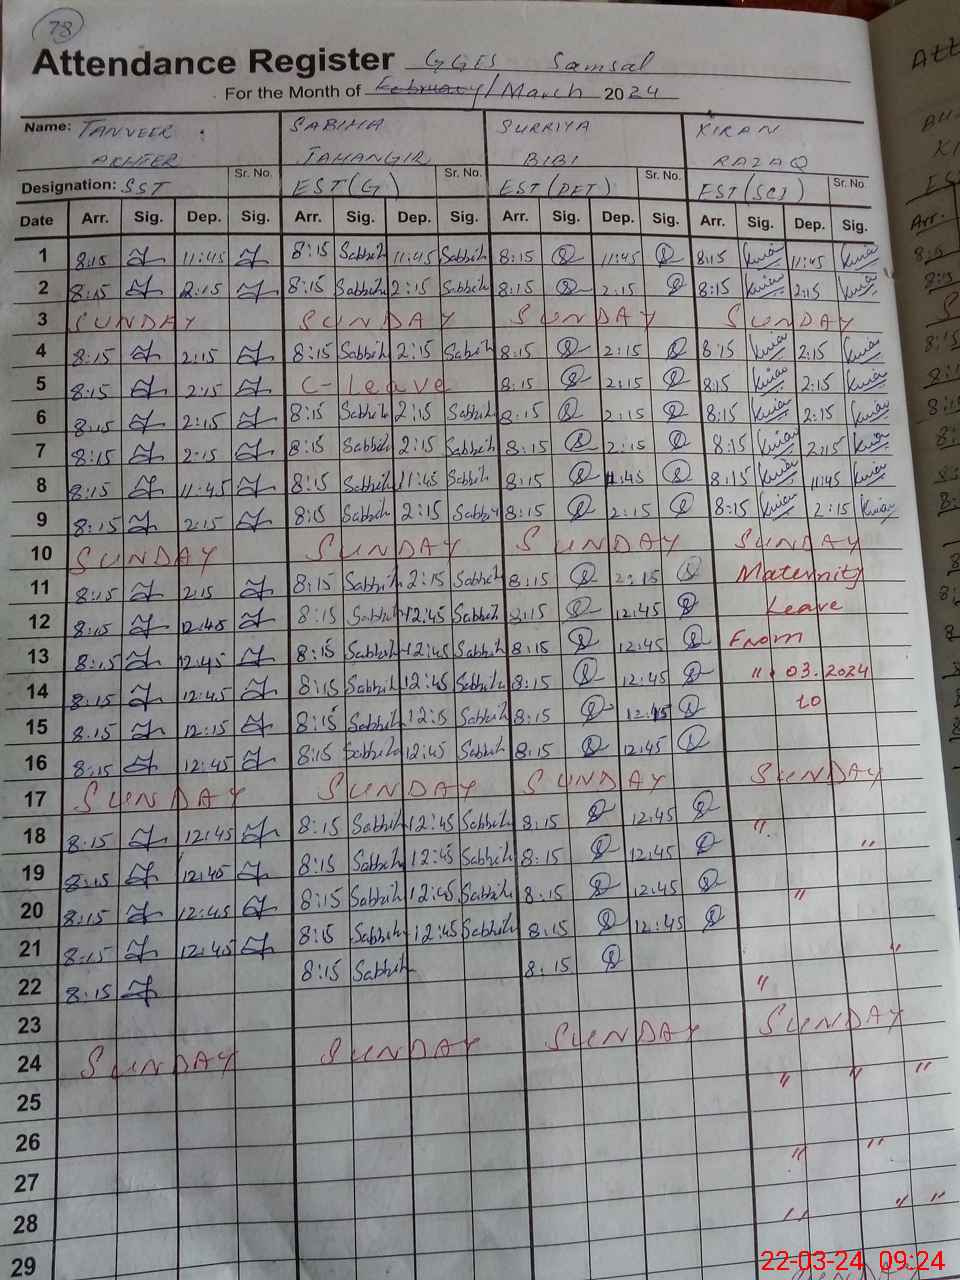 78
Attendance Register GGES Samsal
For the Month of February/March 2024
Name: TANVEER AKHTER SABIHA JAHANGIR SURRIYA BIBI KIRAN RAZAQ
Designation: SST Sr. No. EST(G) Sr. No. EST(PET) Sr. No. EST(SCI) Sr. No.
Date Arr. Sig. Dep. Sig. Arr. Sig. Dep. Sig. Arr. Sig. Dep. Sig. Arr. Sig. Dep. Sig.
1 8:15 11:45 8:15 Sabbih 11:45 Sabbih 8:15 11:45 8:15 Kiran 11:45 Kiran
2 8:15 2:15 8:15 Sabbih 2:15 Sabbih 8:15 2:15 8:15 Kiran 2:15 Kiran
3 SUNDAY SUNDAY SUNDAY SUNDAY
4 8:15 2:15 8:15 Sabbih 2:15 Sabbih 8:15 2:15 8:15 Kiran 2:15 Kiran
5 8:15 2:15 C-Leave 8:15 2:15 8:15 Kiran 2:15 Kiran
6 8:15 2:15 8:15 Sabbih 2:15 Sabbih 8:15 2:15 8:15 Kiran 2:15 Kiran
7 8:15 2:15 8:15 Sabbih 2:15 Sabbih 8:15 2:15 8:15 Kiran 2:15 Kiran
8 8:15 11:45 8:15 Sabbih 11:45 Sabbih 8:15 11:45 8:15 Kiran 11:45 Kiran
9 8:15 2:15 8:15 Sabbih 2:15 Sabbih 8:15 2:15 8:15 Kiran 2:15 Kiran
10 SUNDAY SUNDAY SUNDAY SUNDAY
11 8:15 2:15 8:15 Sabbih 2:15 Sabbih 8:15 2:15 Maternity
12 8:15 12:45 8:15 Sabbih 12:45 Sabbih 8:15 12:45 Leave
13 8:15 12:45 8:15 Sabbih 12:45 Sabbih 8:15 12:45 From
14 8:15 12:45 8:15 Sabbih 12:45 Sabbih 8:15 12:45 11.03.2024
15 8:15 12:15 8:15 Sabbih 12:15 Sabbih 8:15 12:45 to
16 8:15 12:45 8:15 Sabbih 12:45 Sabbih 8:15 12:45
17 SUNDAY SUNDAY SUNDAY SUNDAY
18 8:15 12:45 8:15 Sabbih 12:45 Sabbih 8:15 12:45 "
19 8:15 12:45 8:15 Sabbih 12:45 Sabbih 8:15 12:45 "
20 8:15 12:45 8:15 Sabbih 12:45 Sabbih 8:15 12:45 "
21 8:15 12:45 8:15 Sabbih 12:45 Sabbih 8:15 12:45 "
22 8:15 8:15 Sabbih 8:15 "
23
24 SUNDAY SUNDAY SUNDAY SUNDAY
25 " " "
26
27 " "
28 " " "
29
22-03-24 09:24